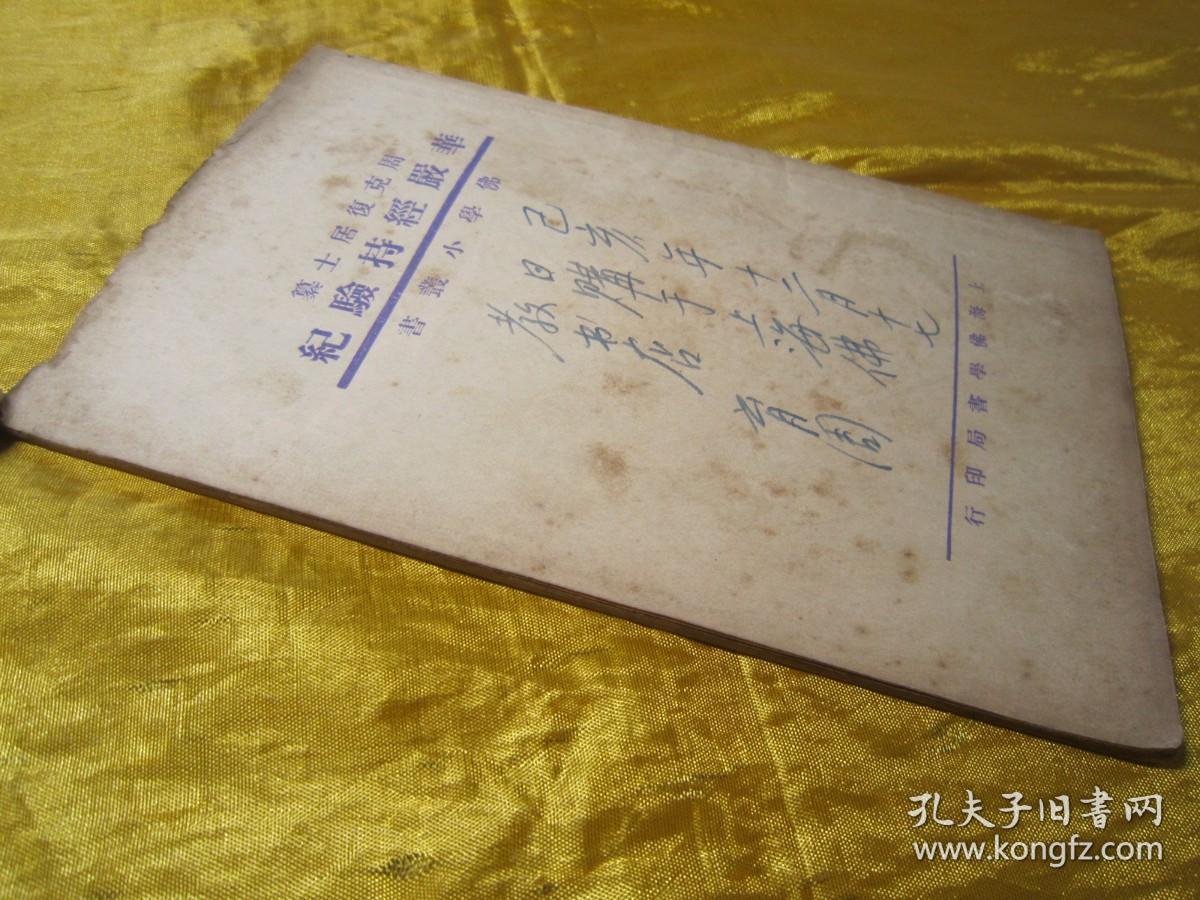 佛學小叢書
華嚴經持驗紀
周克復居士纂
己亥年十二月十七
日購于上海佛
教书店
上海佛學書局印行
孔夫子旧书网
www.kongfz.com